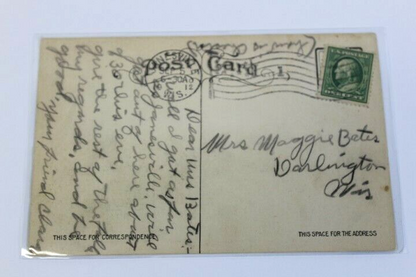 Post Card
Dear Mrs Bates,-
Well I got as far
as Janesville, will
get out of here about
9 30 this eve.
give the rest of the folks
my regards, and be
good.
Your friend
Mrs Maggie Bates
Darlington
Wis
THIS SPACE FOR CORRESPONDENCE
THIS SPACE FOR THE ADDRESS